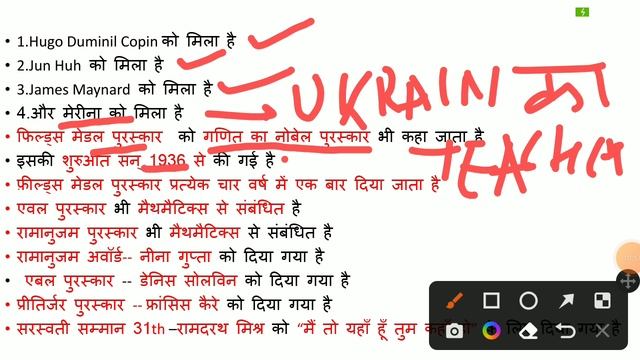 • 1.Hugo Duminil Copin को मिला है
• 2.Jun Huh को मिला है
• 3.James Maynard को मिला है
• 4.और मेरीना को मिला है
UKRAIN का
TEACHER
• फिल्ड्स मेडल पुरस्कार को गणित का नोबेल पुरस्कार भी कहा जाता है
• इसकी शुरुआत सन् 1936 से की गई है
• फ़ील्ड्स मेडल पुरस्कार प्रत्येक चार वर्ष में एक बार दिया जाता है
• एवल पुरस्कार भी मैथमैटिक्स से संबंधित है
• रामानुजम पुरस्कार भी मैथमैटिक्स से संबंधित है
• रामानुजम अवॉर्ड-- नीना गुप्ता को दिया गया है
• एबल पुरस्कार -- डेनिस सोलविन को दिया गया है
• प्रीतिर्जर पुरस्कार -- फ्रांसिस कैरे को दिया गया है
• सरस्वती सम्मान 31th –रामदरथ मिश्र को “मैं तो यहाँ हूँ तुम